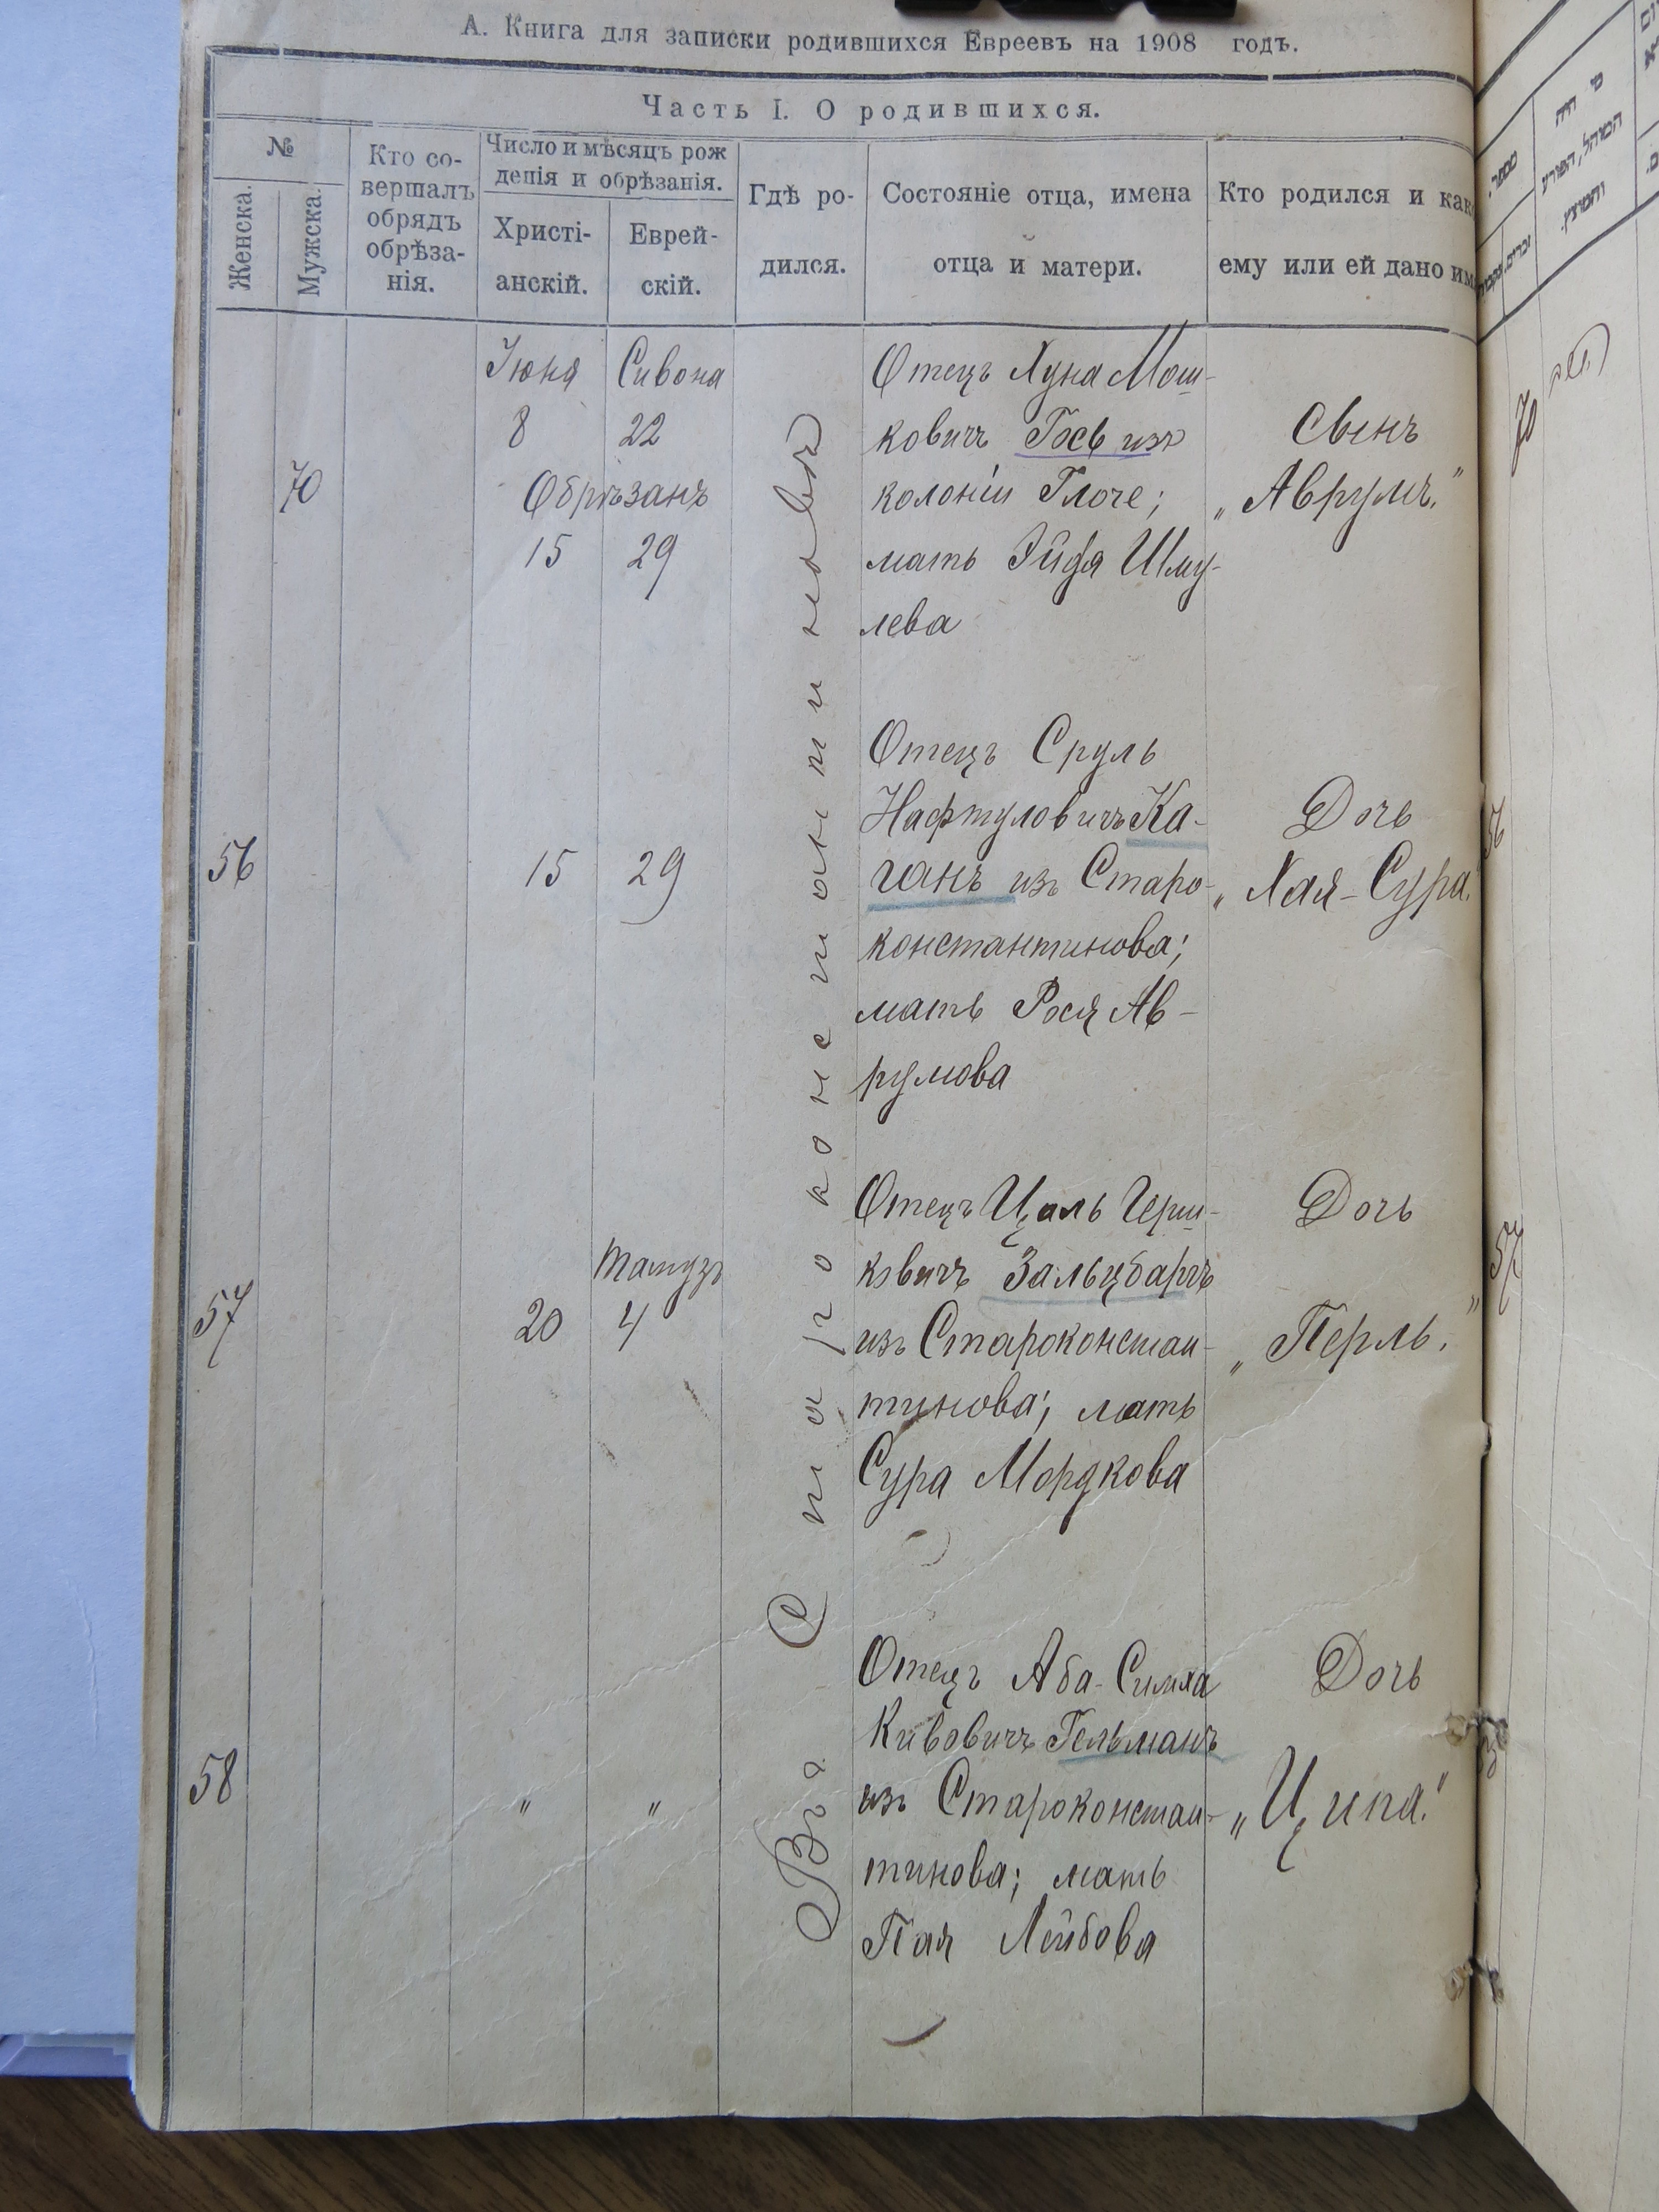 А. Книга для записки родившихся Евреевъ на 1908 годъ.
Часть I. О родившихся.
№
Женска.
Мужска.
Кто со-
вершалъ
обрядъ
обрѣза-
нія.
Число и мѣсяцъ рож
денія и обрѣзанія.
Христі-
анскій.
Еврей-
скій.
Гдѣ ро-
дился.
Состояніе отца, имена
отца и матери.
Кто родился и как
ему или ей дано им
Въ г. Староконстантиновѣ
70
Іюня Сивона
8 22
Обрѣзанъ
15 29
Отецъ Хуна Мош-
ковичъ Гось изъ
колоніи Глоче;
мать Эйдя Шму-
лева
Сынъ
„Аврумъ."
56
15 29
Отецъ Сруль
Нафтуловичъ Ка-
ганъ из Старо-
константинова;
мать Рося Ав-
румова
Дочь
„Хая-Сура."
57
Тамузъ
20 4
Отецъ Цаль Герш-
ковичъ Зальцбаргъ
изъ Староконстан-
тинова; мать
Сура Мордкова
Дочь
„Перль."
58
" "
Отецъ Аба-Симха
Кивовичъ Гельманъ
изъ Староконстан-
тинова; мать
Пая Лейбова
Дочь
„Ципа."
מספר
מי היה
המוהל, הפורע
והמוצץ.
70
56
57